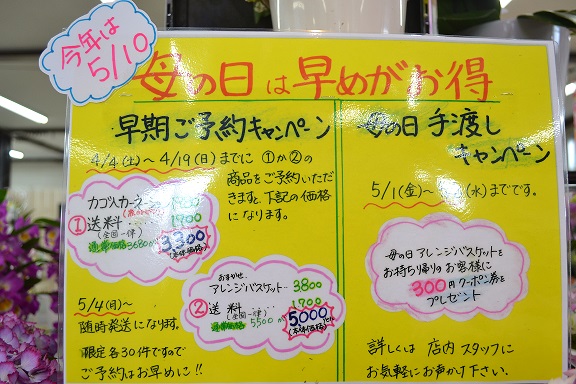 今年は
5/10
母の日は早めがお得
早期ご予約キャンペーン
4/4(土)～4/19(日)までに ①か②の
商品をご予約いただ
きますと、下記の価格
になります。
カゴ入カーネーション
①送料 1700
(全国一律)
通常価格 3680
3300
(本体価格)
おまかせ
アレンジバスケット… 3800
②送料 …… 1700
(全国一律)
通常価格 5500が
5000
(本体価格)
5/4(月)～
随時発送になります。
限定各30件ですので
ご予約はお早めに!!
母の日 手渡し
キャンペーン
5/1(金)～ (水)までです。
母の日アレンジバスケットを
お持ち帰りのお客様に
300円クーポン券を
プレゼント
詳しくは 店内スタッフに
お気軽にお声かけ下さい。